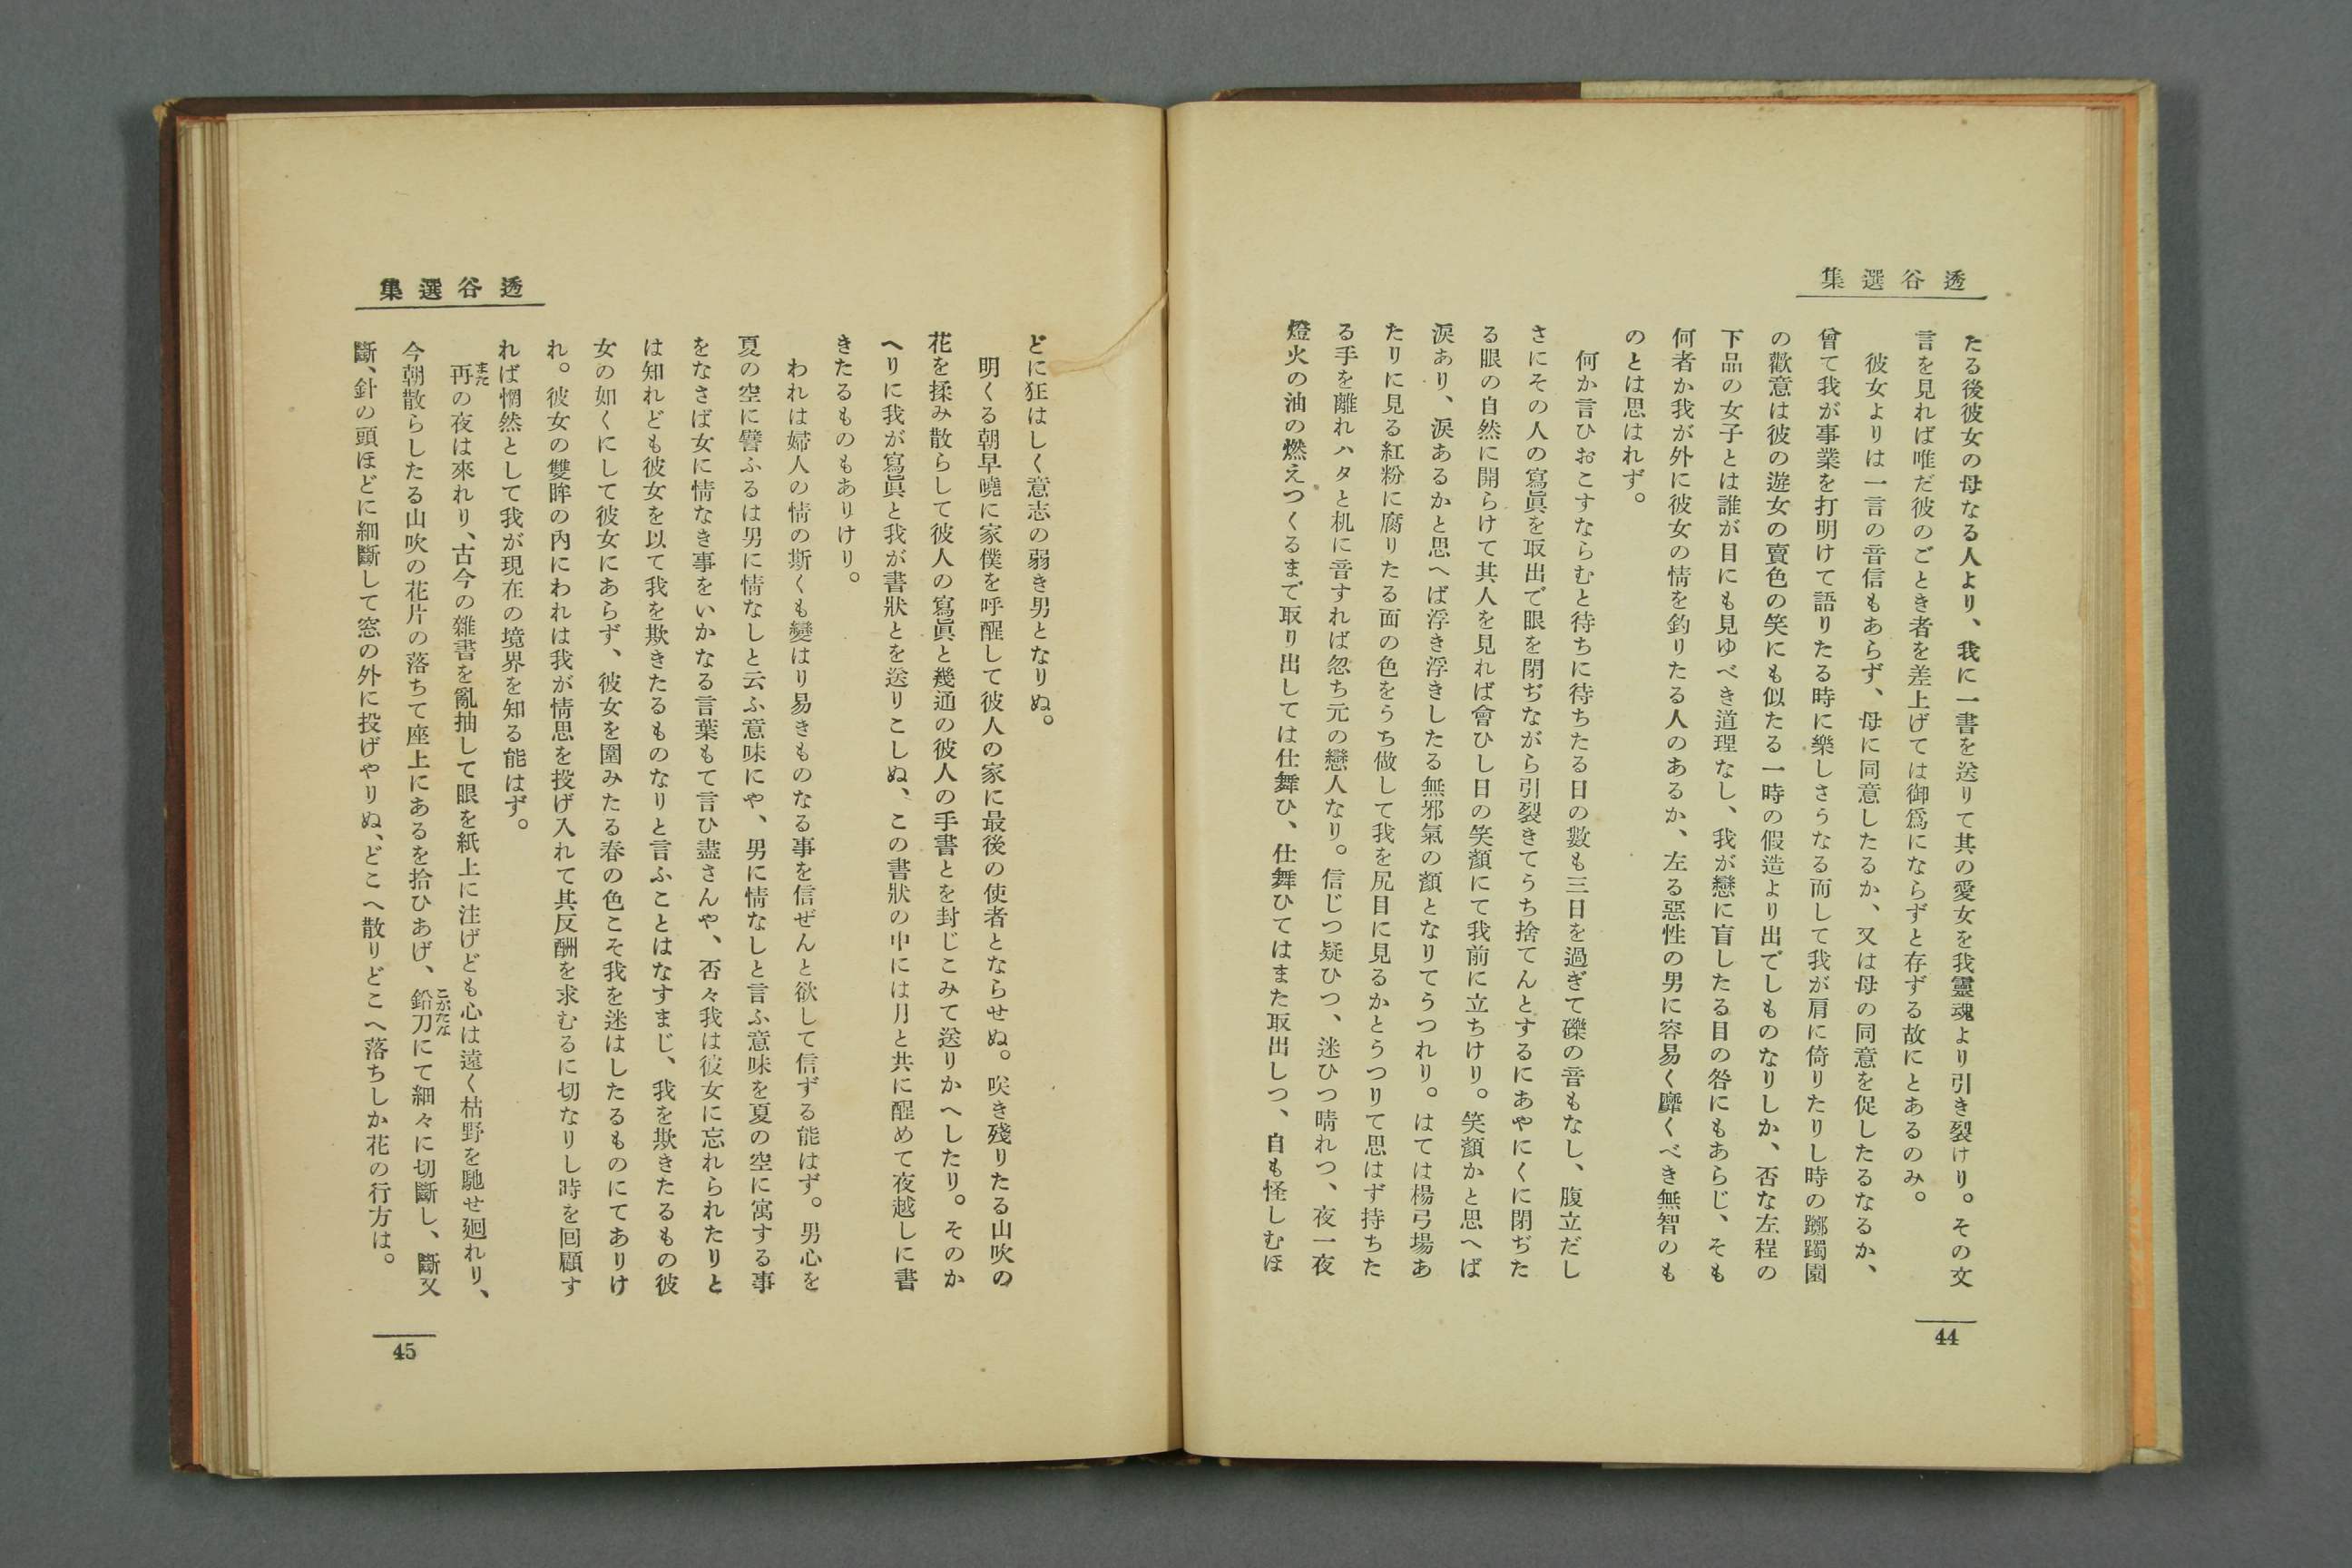 透谷選集
たる後彼女の母なる人より、我に一書を送りて其の愛女を我靈魂より引き裂けり。その文
言を見れば唯だ彼のごとき者を差上げては御爲にならずと存ずる故にとあるのみ。
彼女よりは一言の音信もあらず、母に同意したるか、又は母の同意を促したるなるか、
曾て我が事業を打明けて語りたる時に樂しさうなる而して我が肩に倚りたりし時の躑躅園
の歡意は彼の遊女の賣色の笑にも似たる一時の假造より出でしものなりしか、否な左程の
下品の女子とは誰が目にも見ゆべき道理なし、我が戀に盲したる目の咎にもあらじ、そも
何者か我が外に彼女の情を釣りたる人のあるか、左る惡性の男に容易く靡くべき無智のも
のとは思はれず。
何か言ひおこすならむと待ちに待ちたる日の數も三日を過ぎて礫の音もなし、腹立だし
さにその人の寫眞を取出で眼を閉ぢながら引裂きてうち捨てんとするにあやにくに閉ぢた
る眼の自然に開らけて其人を見れば會ひし日の笑顏にて我前に立ちけり。笑顏かと思へば
淚あり、淚あるかと思へば浮き浮きしたる無邪氣の顏となりてうつれり。はては楊弓場あ
たりに見る紅粉に腐りたる面の色をうち做して我を尻目に見るかとうつりて思はず持ちた
る手を離れハタと机に音すれば忽ち元の戀人なり。信じつ疑ひつ、迷ひつ晴れつ、夜一夜
燈火の油の燃えつくるまで取り出しては仕舞ひ、仕舞ひてはまた取出しつ、自も怪しむほ
44
透谷選集
どに狂はしく意志の弱き男となりぬ。
明くる朝早曉に家僕を呼醒して彼人の家に最後の使者とならせぬ。咲き殘りたる山吹の
花を揉み散らして彼人の寫眞と幾通の彼人の手書とを封じこみて送りかへしたり。そのか
へりに我が寫眞と我が書狀とを送りこしぬ、この書狀の中には月と共に醒めて夜越しに書
きたるものもありけり。
われは婦人の情の斯くも變はり易きものなる事を信ぜんと欲して信ずる能はず。男心を
夏の空に譬ふるは男に情なしと云ふ意味にや、男に情なしと言ふ意味を夏の空に寓する事
をなさば女に情なき事をいかなる言葉もて言ひ盡さんや、否々我は彼女に忘れられたりと
は知れども彼女を以て我を欺きたるものなりと言ふことはなすまじ、我を欺きたるもの彼
女の如くにして彼女にあらず、彼女を圍みたる春の色こそ我を迷はしたるものにてありけ
れ。彼女の雙眸の內にわれは我が情思を投げ入れて其反酬を求むるに切なりし時を回顧す
れば惘然として我が現在の境界を知る能はず。
再の夜は來れり、古今の雜書を亂抽して眼を紙上に注げども心は遠く枯野を馳せ廻れり、
また
今朝散らしたる山吹の花片の落ちて座上にあるを拾ひあげ、鉛刀にて細々に切斷し、斷又
こがたな
斷、針の頭ほどに細斷して窓の外に投げやりぬ、どこへ散りどこへ落ちしか花の行方は。
45